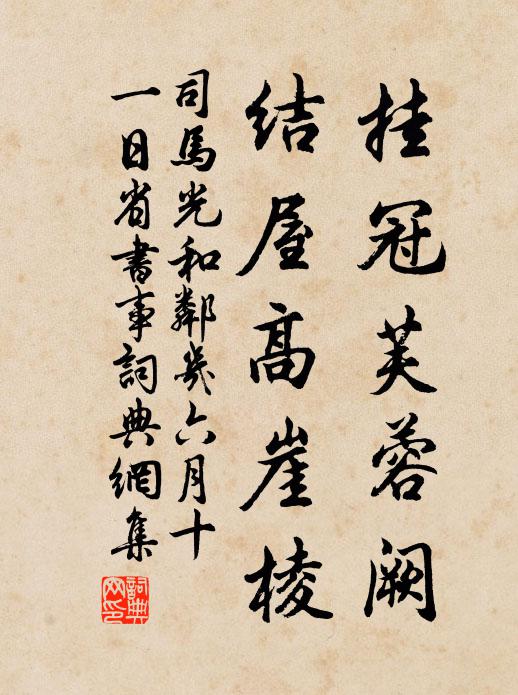 挂冠芙蓉阙
结屋高崖棱
司馬光和鄰几六月十
一日省書事詞典網集
詞典网印